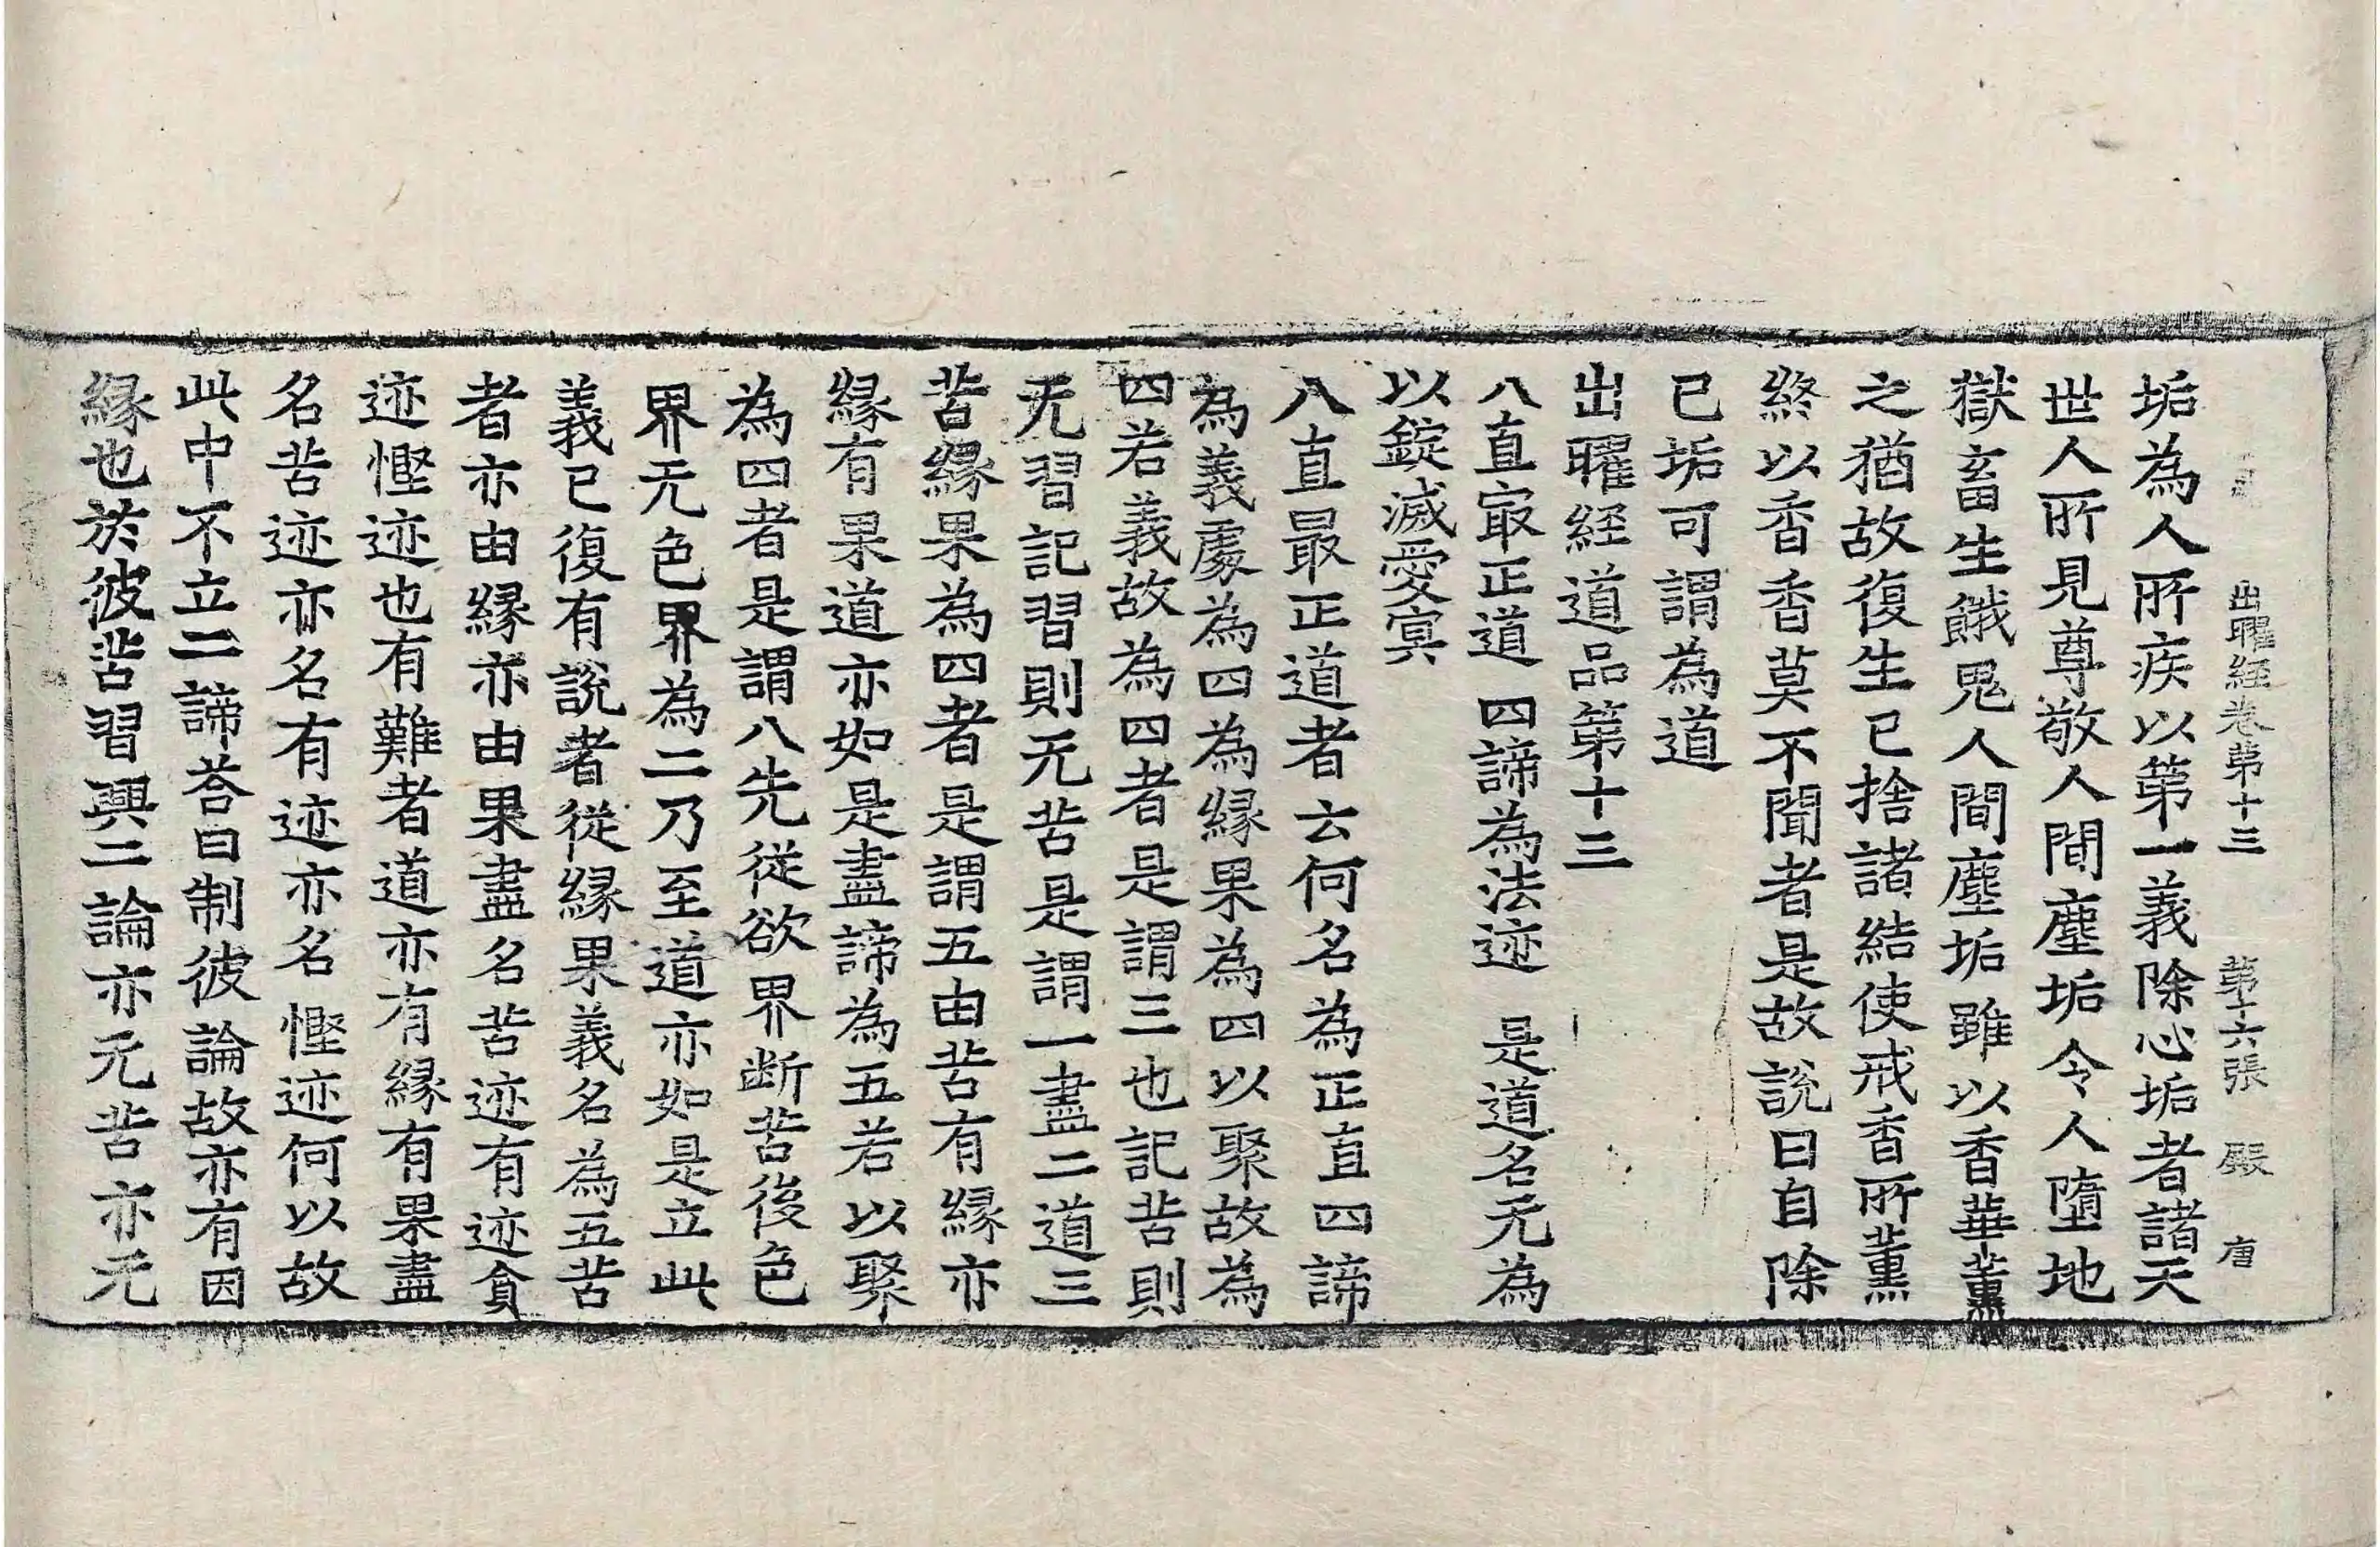 出曜經卷第十三 第十六張 殿 唐
垢為人所疾以第一義除心垢者諸天
世人所見尊敬人間塵垢令人墮地
獄畜生餓鬼人間塵垢雖以香華薰
之猶故復生已捨諸結使戒香所薰
終以香香莫不聞者是故說曰自除
已垢可謂為道
出曜経道品第十三
八直㝡正道 四諦為法迹 是道名无為
以錠滅愛㝠
八直最正道者云何名為正直四諦
為義處為四為緣果為四以聚故為
四若義故為四者是謂三也記苦則
无習記習則无苦是謂一盡二道三
苦緣果為四者是謂五由苦有緣亦
緣有果道亦如是盡諦為五若以聚
為四者是謂八先從欲界断苦後色
界无色界為二乃至道亦如是立此
義已復有說者從緣果義名為五苦
者亦由緣亦由果盡名苦迹有迹貪
迹慳迹也有難者道亦有緣有果盡
名苦迹亦名有迹亦名慳迹何以故
此中不立二諦荅曰制彼論故亦有因
緣也於彼苦習興二論亦无苦亦无